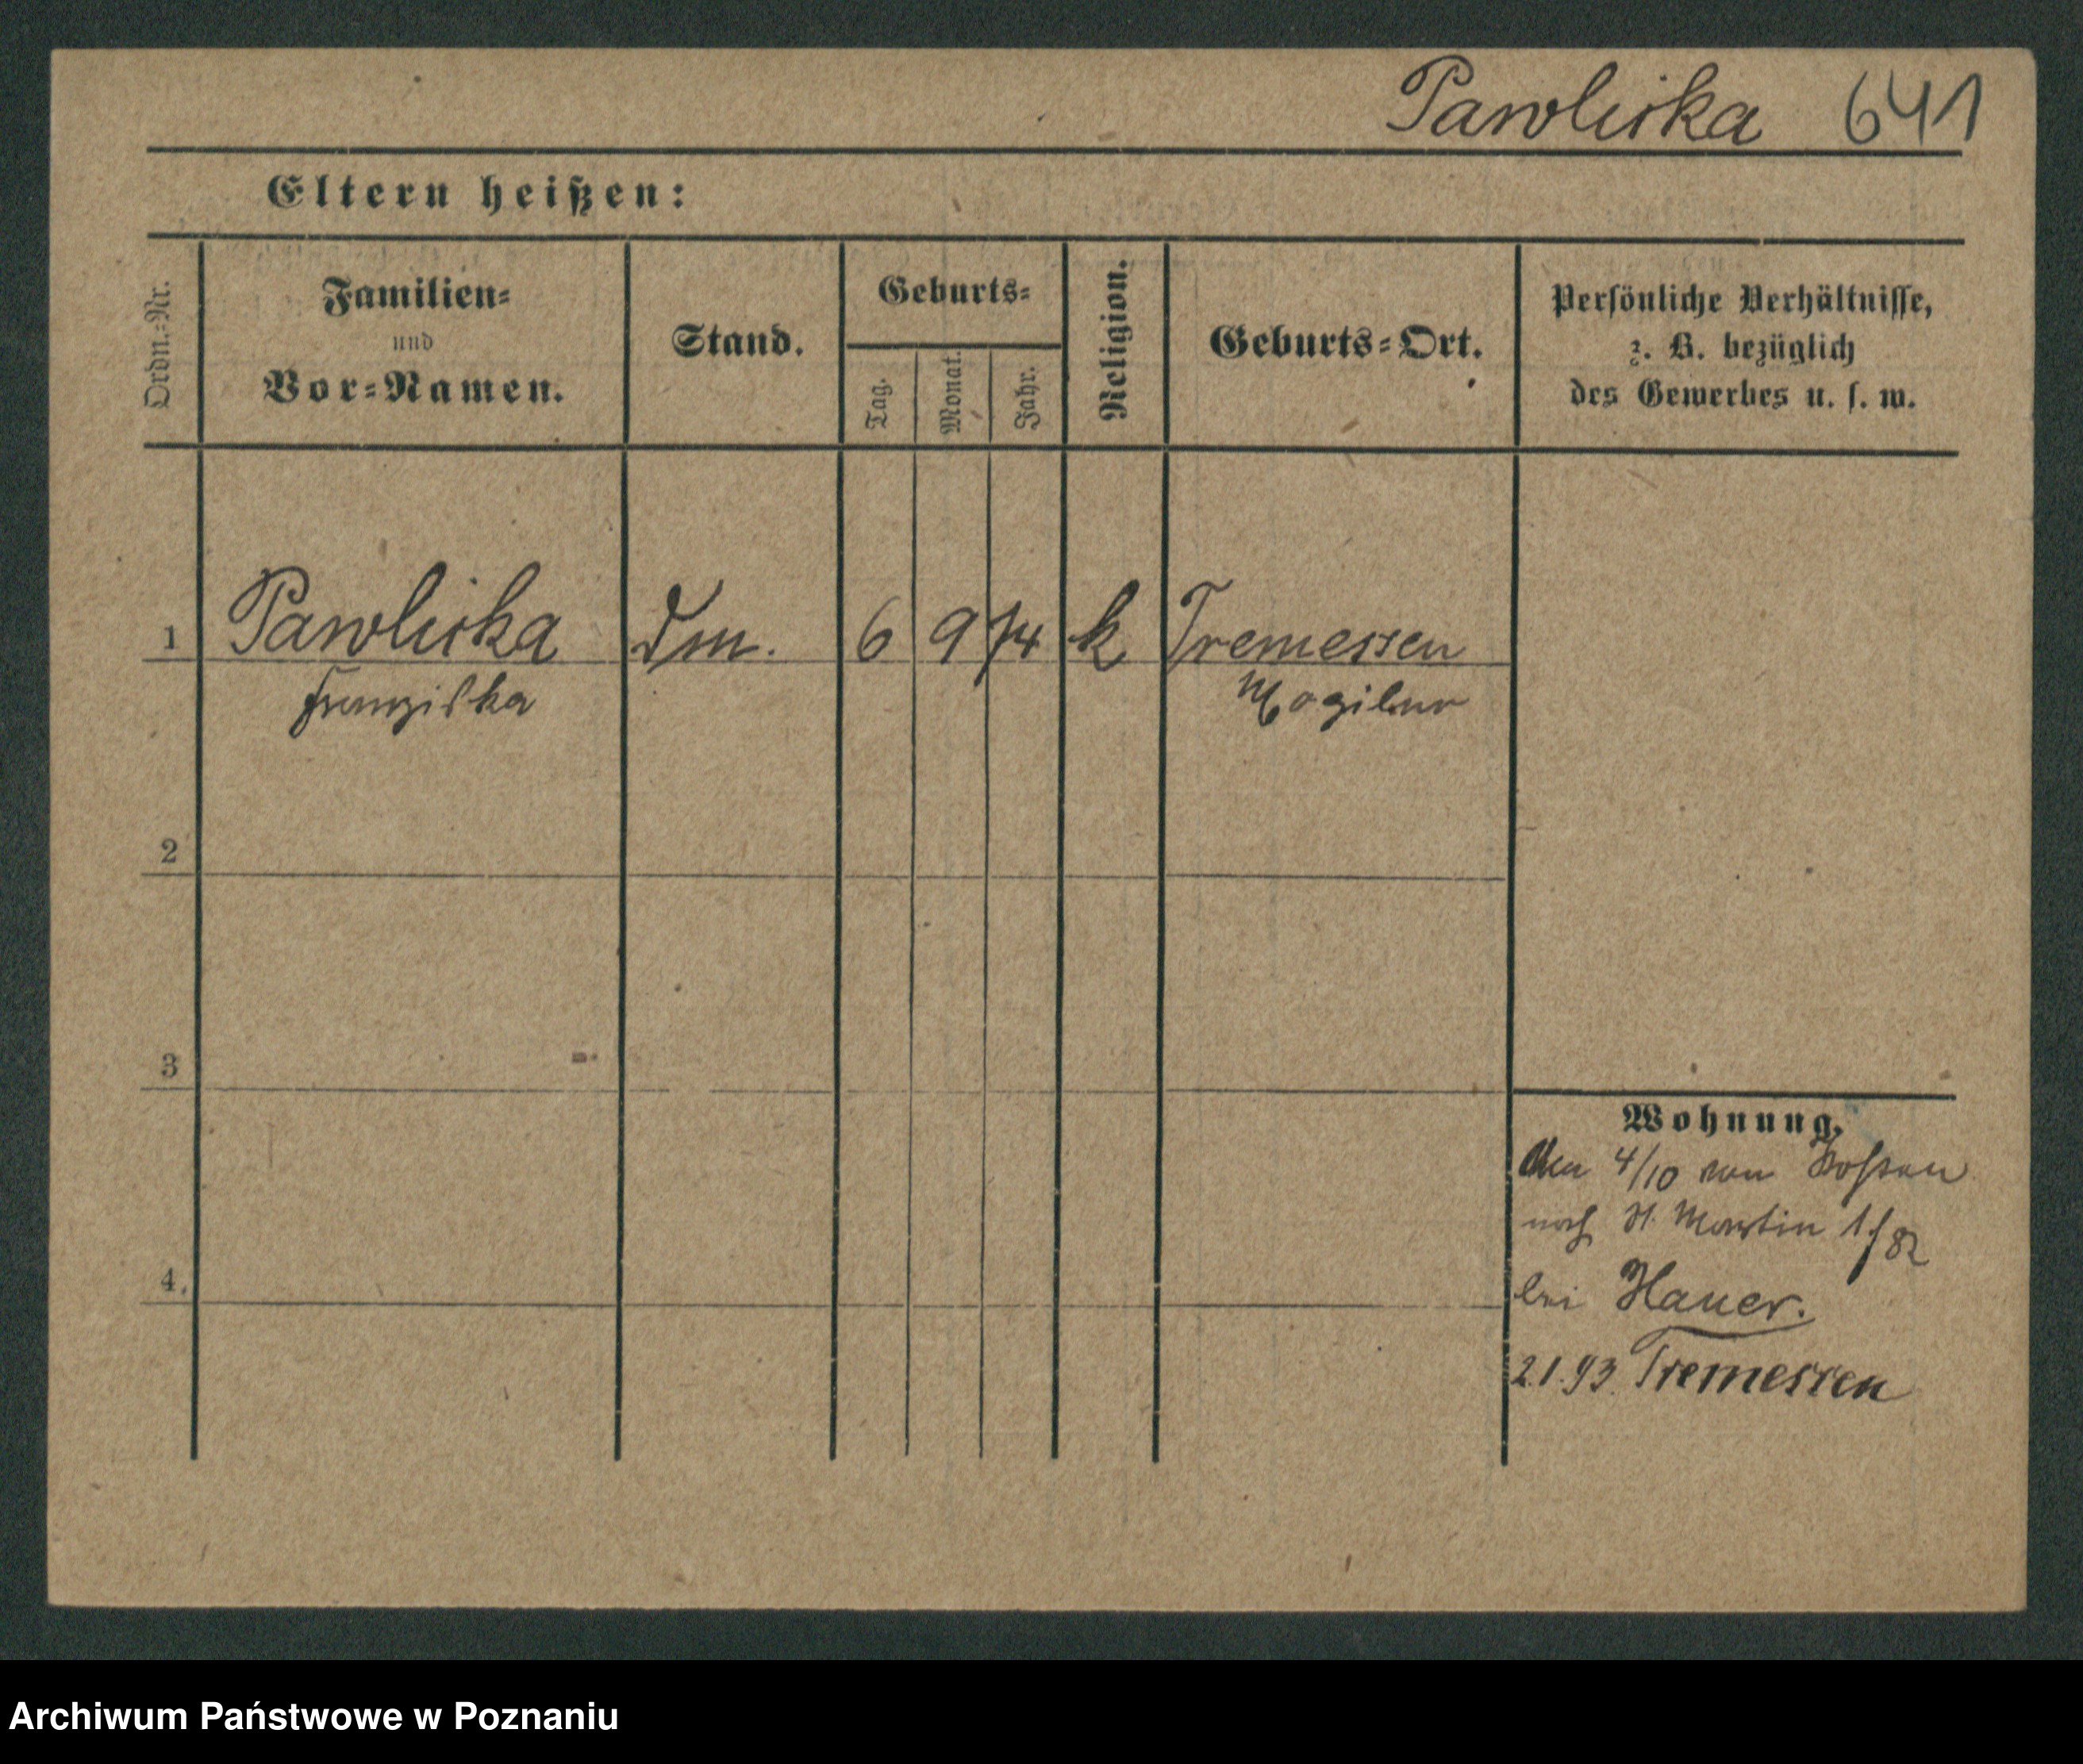 Pawlicka 641
Eltern heißen:
Ordn.-Nr.
Familien-
und
Vor-Namen.
Stand.
Geburts-
Tag.
Monat.
Jahr.
Religion.
Geburts-Ort.
Persönliche Verhältnisse,
z. B. bezüglich
des Gewerbes u. s. w.
1 Pawlicka 6 9 74 k Tremessen
Franziska Mogilno
2
3
4.
Wohnung.
den 4/10 von
nach St. Martin
bei Hauer.
2.1.93. Tremessen
Archiwum Państwowe w Poznaniu